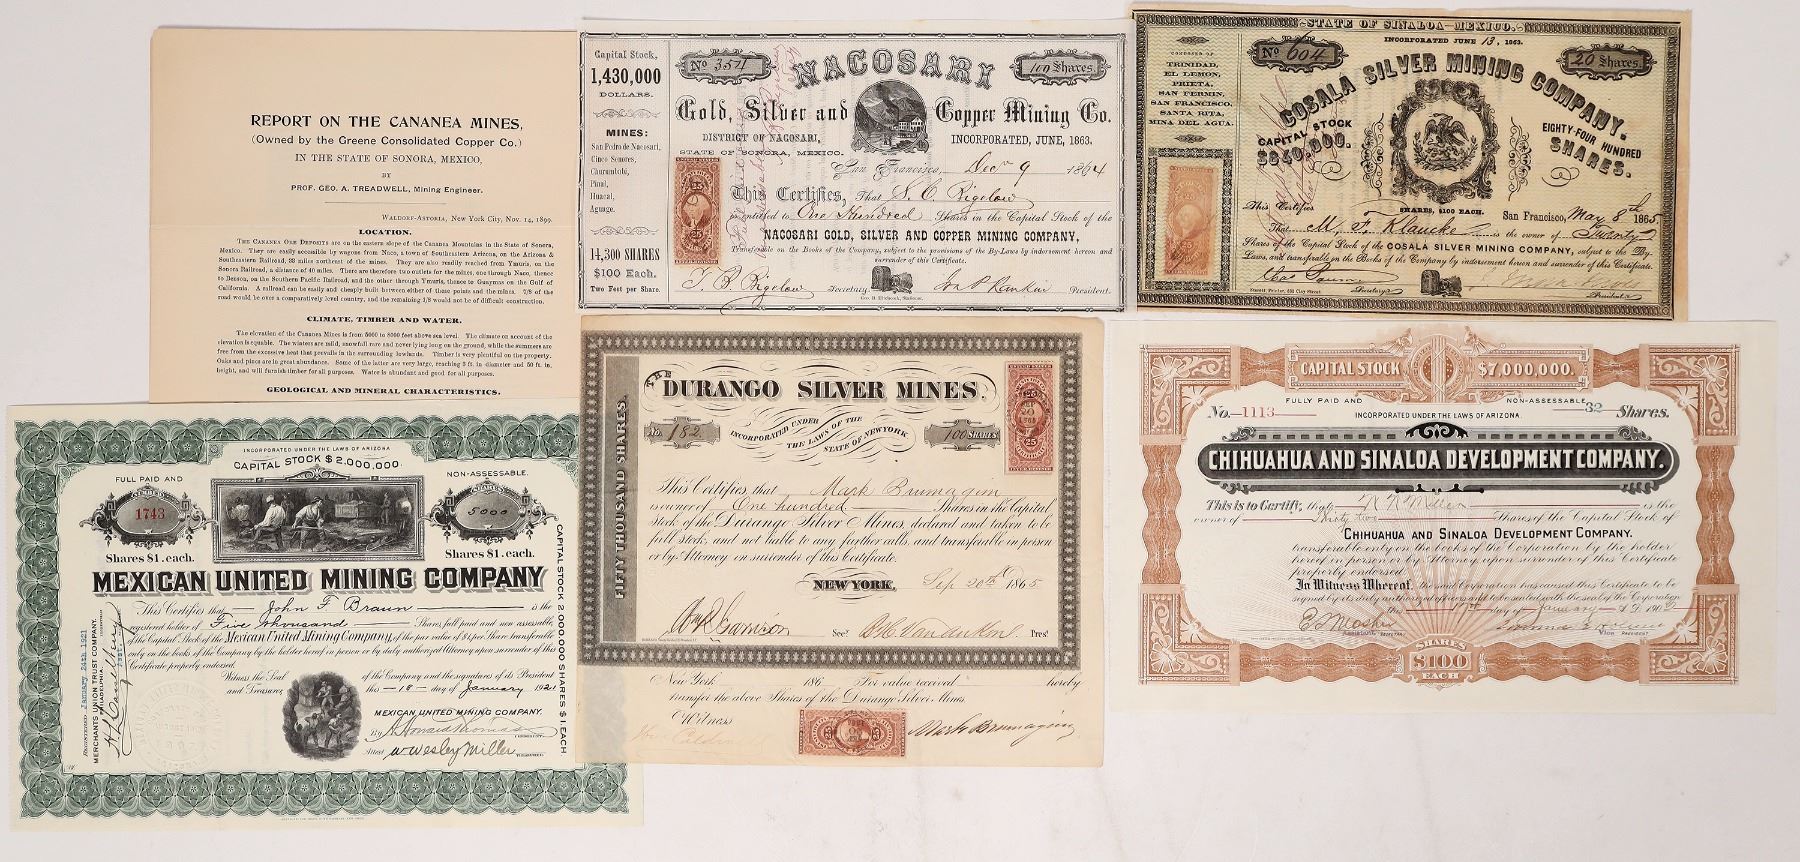 REPORT ON THE CANANEA MINES,
(Owned by the Greene Consolidated Copper Co.)
IN THE STATE OF SONORA, MEXICO,
BY
PROF. GEO. A. TREADWELL, Mining Engineer.
WALDORF-ASTORIA, New York City, Nov. 14, 1899.
LOCATION.
THE CANANEA ORE DEPOSITS are on the eastern slope of the Cananea Mountains in the State of Sonora,
Mexico. They are easily accessible by wagons from Naco, a town of Southeastern Arizona, on the Arizona &
Southeastern Railroad, 33 miles northeast of the mines. They are also readily reached from Ymuris, on the
Sonora Railroad, a distance of 40 miles. There are therefore two outlets for the mines, one through Naco, thence
to Benson, on the Southern Pacific Railroad, and the other through Ymuris, thence to Guaymas on the Gulf of
California. A railroad can be easily and cheaply built between either of these points and the mines. 7/8 of the
road would be over a comparatively level country, and the remaining 1/8 would not be of difficult construction.
CLIMATE, TIMBER AND WATER.
The elevation of the Cananea Mines is from 5000 to 8000 feet above sea level. The climate on account of the
elevation is equable. The winters are mild, snowfall rare and never lying long on the ground, while the summers are
free from the excessive heat that prevails in the surrounding lowlands. Timber is very plentiful on the property.
Oaks and pines are in great abundance. Some of the latter are very large, reaching 3 ft. in diameter and 50 ft. in
height, and will furnish timber for all purposes. Water is abundant and good for all purposes.
GEOLOGICAL AND MINERAL CHARACTERISTICS.
Capital Stock,
1,430,000
DOLLARS.
MINES:
San Pedro de Nacosari,
Cinco Senores,
Churuntabi,
Pinal,
Huacal,
Aguage.
14,300 SHARES
$100 Each.
Two Feet per Share.
No 3571
100 Shares.
NACOSARI
Gold, Silver and Copper Mining Co.
DISTRICT OF NACOSARI,
STATE OF SONORA, MEXICO.
INCORPORATED, JUNE, 1863.
San Francisco, Decr 9 1864
This Certifies, That S. C. Bigelow
is entitled to One Hundred Shares in the Capital Stock of the
NACOSARI GOLD, SILVER AND COPPER MINING COMPANY,
Transferable on the Books of the Company, subject to the provisions of the By-Laws by indorsement hereon and
surrender of this Certificate.
T. B. Bigelow Secretary. President.
STATE OF SINALOA-MEXICO.
INCORPORATED JUNE 13, 1863.
COMPOSED OF
TRINIDAD,
EL LEMON,
PRIETA,
SAN FERMIN,
SAN FRANCISCO,
SANTA RITA,
MINA DEL AGUA.
No 604
20 Shares.
COSALA SILVER MINING COMPANY.
CAPITAL STOCK
$840,000.
EIGHTY-FOUR HUNDRED
SHARES.
SHARES, $100 EACH.
San Francisco, May 8th 1865
This Certifies
That M. F. Klaucke is the owner of Twenty
Shares of the Capital Stock of the COSALA SILVER MINING COMPANY, subject to the By-
Laws, and transferable on the Books of the Company by indorsement hereon and surrender of this Certificate.
Secretary.
President.
INCORPORATED UNDER THE LAWS OF ARIZONA
CAPITAL STOCK $2,000,000
FULL PAID AND
NON-ASSESSABLE.
NUMBER
1743
SHARES
5000
Shares $1. each.
Shares $1. each.
MEXICAN UNITED MINING COMPANY
This Certifies that John F. Braun is the
registered holder of Five thousand Shares, full paid and non assessable,
of the Capital Stock of the Mexican United Mining Company, of the par value of $1. per Share transferable
only on the books of the Company by the holder hereof in person or by duly authorized Attorney upon surrender of this
Certificate properly endorsed.
Witness the Seal of the Company and the signatures of its President
and Treasurer, this 18 day of January 1921
MEXICAN UNITED MINING COMPANY.
By
Attest W Wesley Miller
TREASURER
REGISTERED January 24th 1921
MERCHANTS UNION TRUST COMPANY.
PHILADELPHIA.
CAPITAL STOCK 2,000,000 SHARES $1. EACH.
THE DURANGO SILVER MINES.
FIFTY THOUSAND SHARES.
No. 182
INCORPORATED UNDER
THE LAWS OF THE
STATE OF NEW YORK
100 SHARES
This Certifies that Mark Brumagim
is owner of One hundred Shares in the Capital
Stock of the Durango Silver Mines, declared and taken to be
full stock, and not liable to any further calls, and transferable in person
or by Attorney on surrender of this Certificate.
NEW YORK, Sep 20th 1865
Secy.
Prest
New York 186 For value received hereby
transfer the above Shares of the Durango Silver Mines.
Witness
Mark Brumagim
CAPITAL STOCK $7,000,000.
FULLY PAID AND NON-ASSESSABLE
No. 1113
INCORPORATED UNDER THE LAWS OF ARIZONA.
32 Shares.
CHIHUAHUA AND SINALOA DEVELOPMENT COMPANY.
This is to Certify, that is the
owner of Thirty two Shares of the Capital Stock of
CHIHUAHUA AND SINALOA DEVELOPMENT COMPANY.
transferable only on the books of the Corporation by the holder
hereof in person or by Attorney, upon surrender of this Certificate
properly endorsed.
In Witness Whereof, the said Corporation has caused this Certificate to be
signed by its duly authorized officers and to be sealed with the seal of the Corporation
this 17th day of January A.D. 190
SHARES
$100
EACH